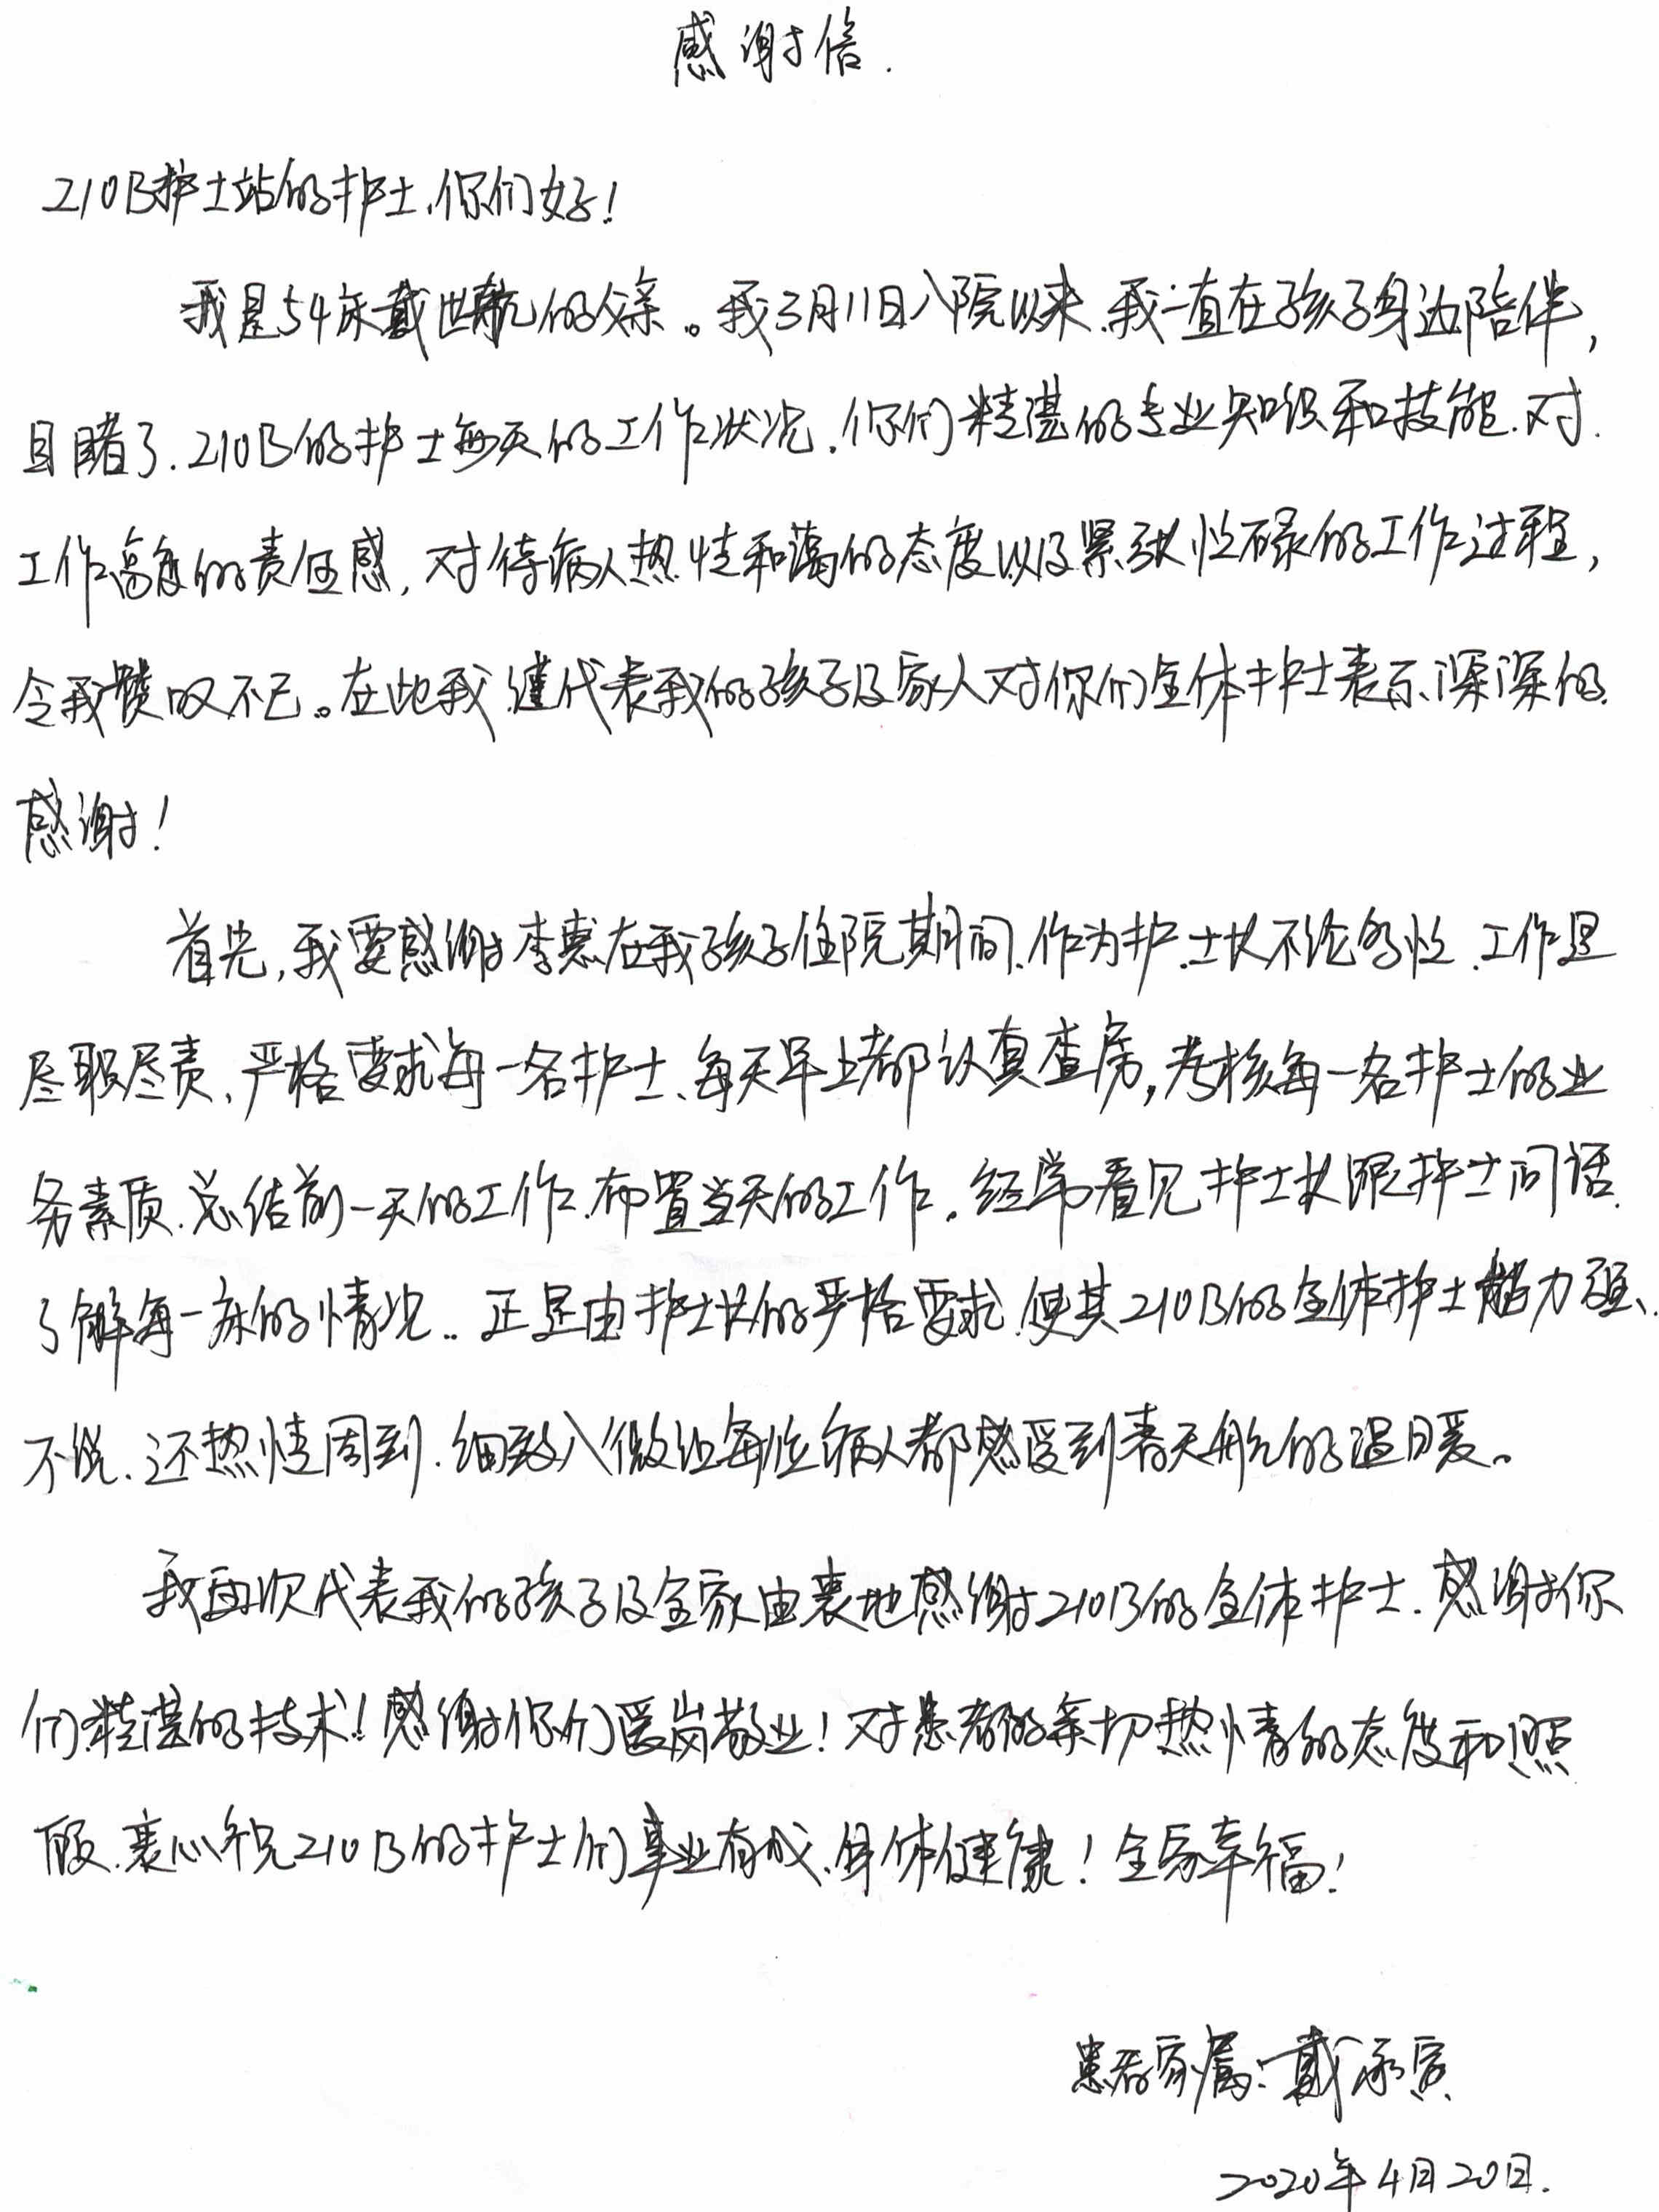 感谢信.
210B护士站的护士,你们好!
我是54床戴世航的父亲。我3月11日入院以来,我一直在孩子身边陪伴,
目睹了.210B的护士每天的工作状况.你们精湛的专业知识和技能.对.
工作高度的责任感,对待病人热情和蔼的态度以及紧张忙碌的工作过程,
令我赞叹不已。在此我谨代表我的孩子及家人对你们全体护士表示深深的.
感谢!
首先,我要感谢李惠在我孩子住院期间.作为护士长不论多忙.工作是
尽职尽责、严格要求每一名护士、每天早上都认真查房,考核每一名护士的业
务素质.总结前一天的工作.布置当天的工作.经常看见护士长跟护士问话.
了解每一床的情况..正是由护士长的严格要求.使其210B的全体护士能力强、
不说.还热情周到.细致入微让每位病人都感受到春天般的温暖。
我再次代表我的孩子及全家由衷地感谢210B的全体护士.感谢你
们精湛的技术!感谢你们爱岗敬业!对患者的亲切热情的态度和照
顾.衷心祝210B的护士们事业有成、身体健康!全家幸福!
患者家属:戴
2020年4月20日.